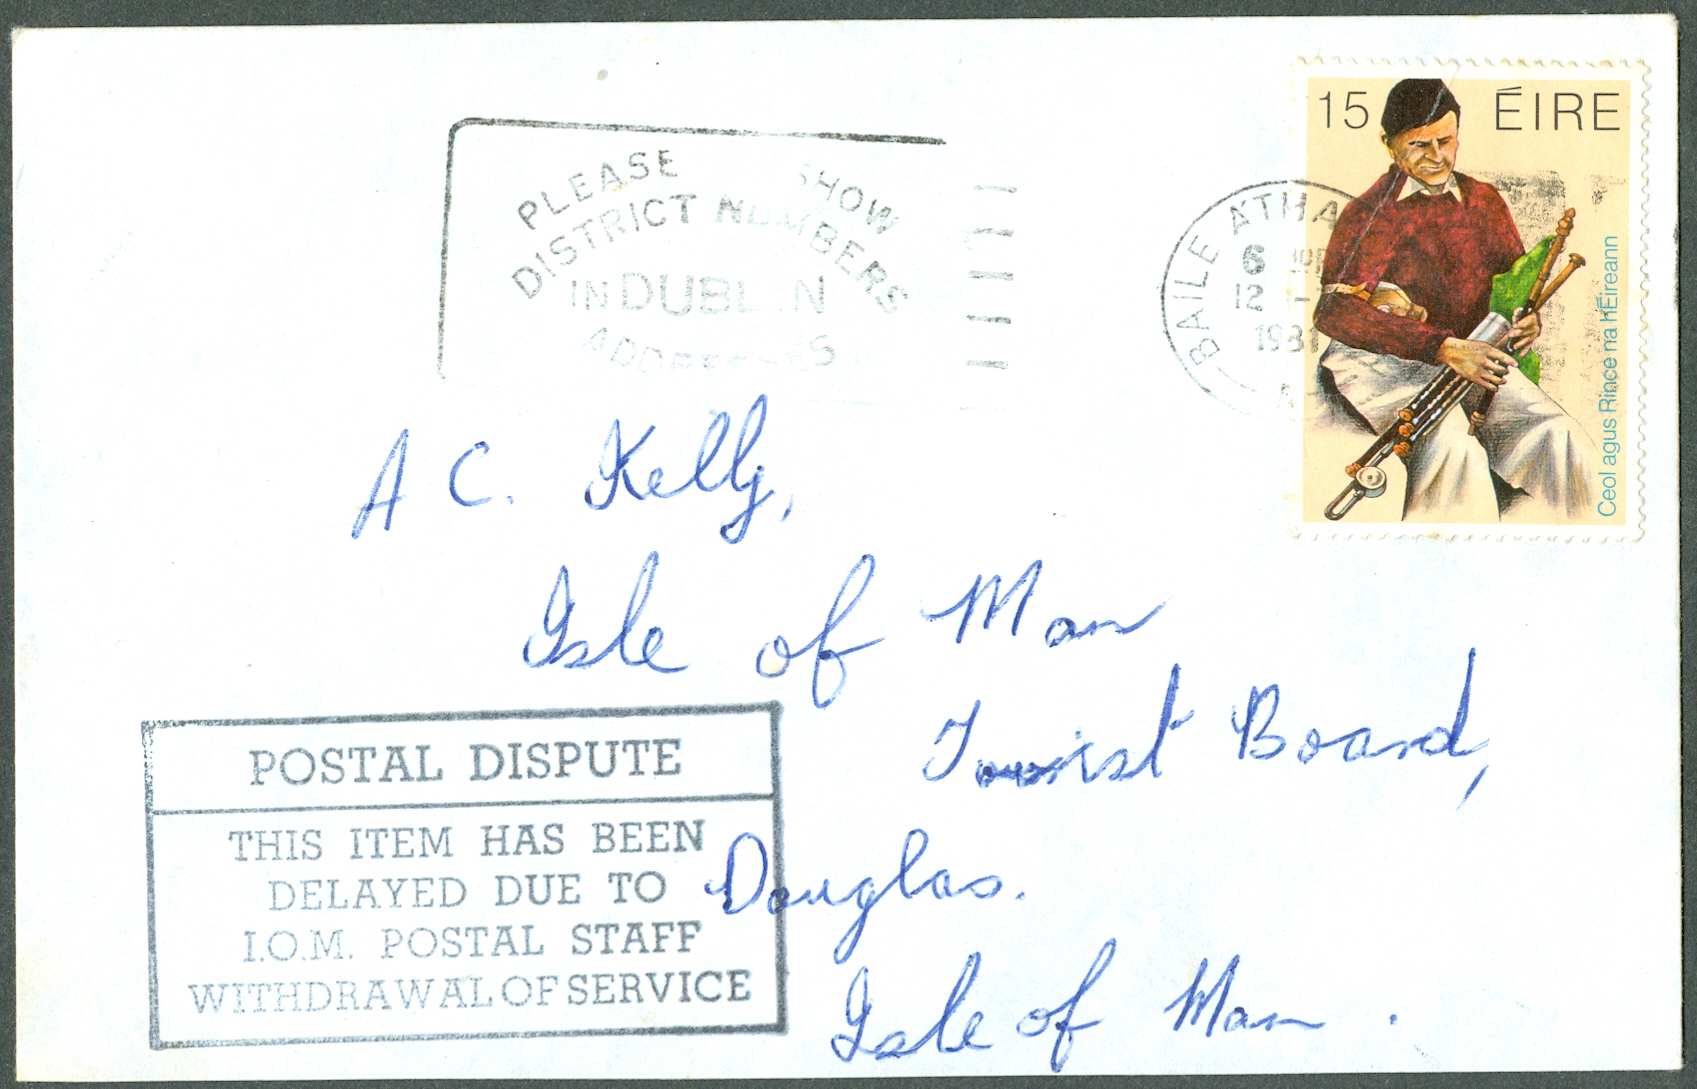 PLEASE SHOW
DISTRICT NUMBERS
IN DUBLIN
ADDRESSES
BAILE ÁTHA
6
12
1981
15 ÉIRE
Ceol agus Rince na hÉireann
A C. Kelly,
Isle of Man
Tourist Board,
Douglas.
Isle of Man.
POSTAL DISPUTE
THIS ITEM HAS BEEN
DELAYED DUE TO
I.O.M. POSTAL STAFF
WITHDRAWAL OF SERVICE